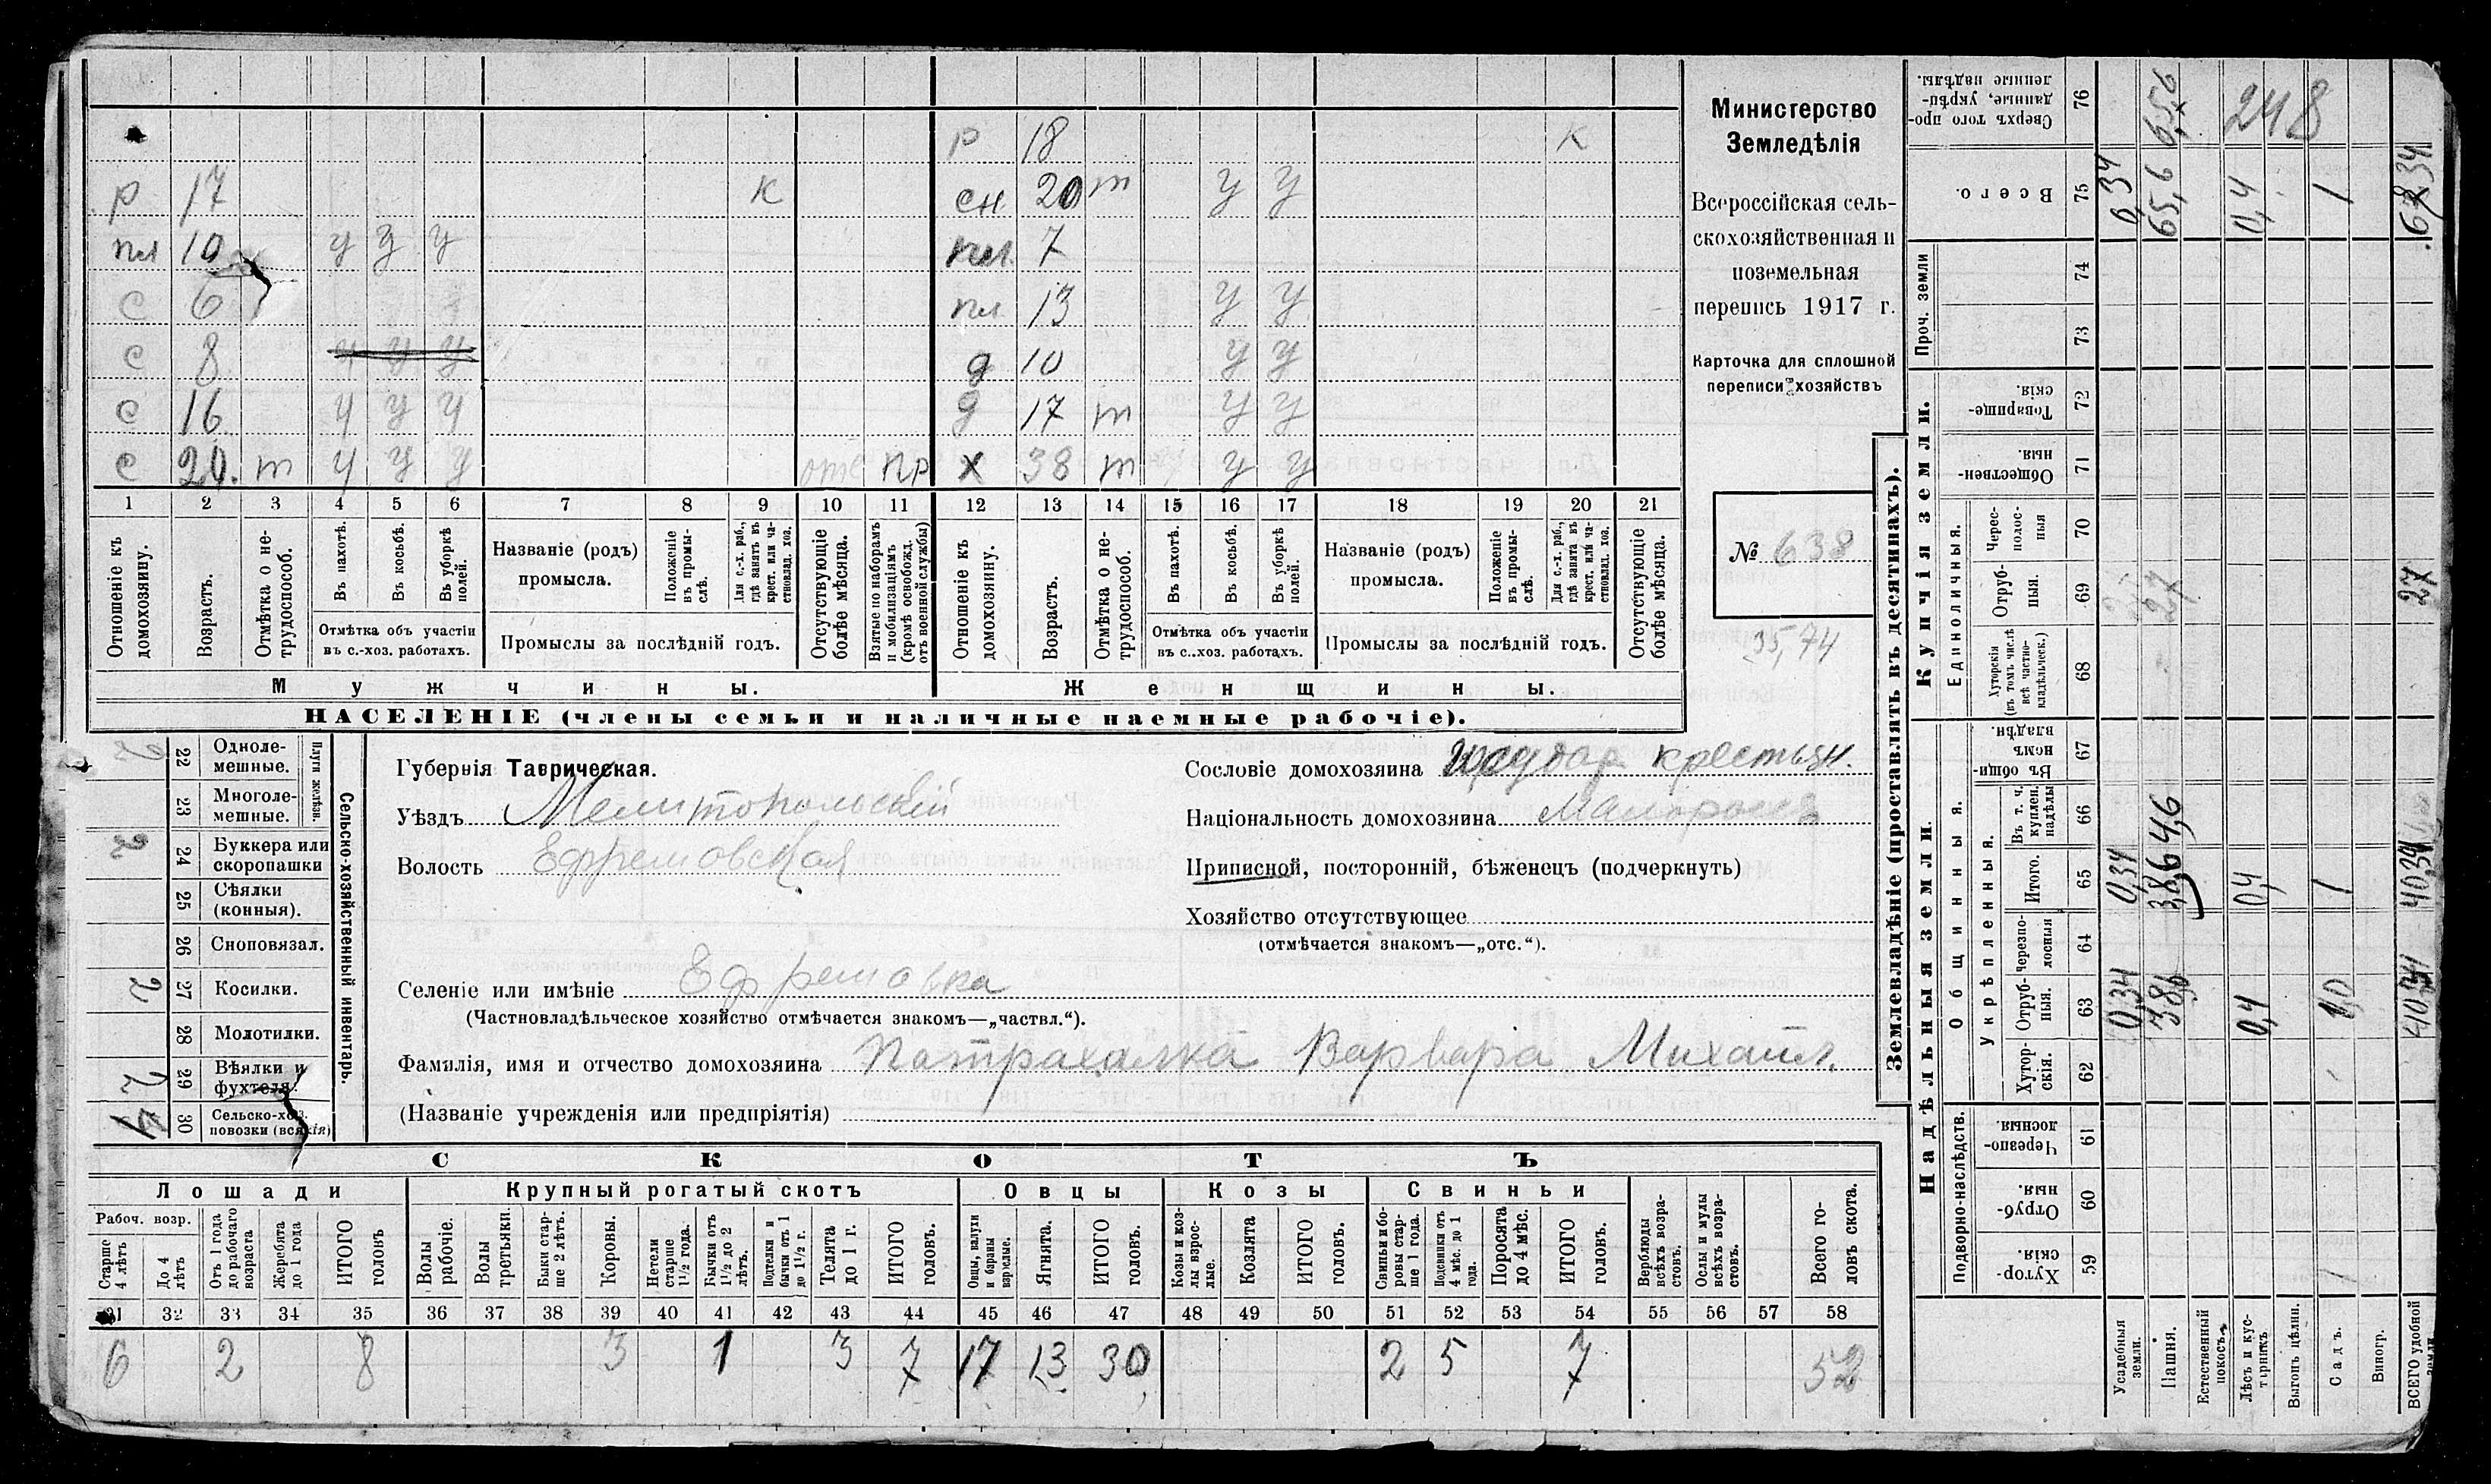 Министерство
Земледѣлія
Всероссійская сель-
скохозяйственная и
поземельная
перепись 1917 г.
Карточка для сплошной
переписи хозяйствъ
№ 638
35,74
р 18 к
р 17 к сн 20 т у у
пл 10 у у у пл 7
с 6 пл 13 у у
с 8 у у у д 10 у у
с 16 у у у д 17 т у у
с 20. т у у у отс пр х 38 т у у
1 2 3 4 5 6 7 8 9 10 11 12 13 14 15 16 17 18 19 20 21
Отношеніе къ домохозяину.
Возрастъ.
Отмѣтка о не-трудоспособ.
Въ пахотѣ.
Въ косьбѣ.
Въ уборкѣ полей.
Отмѣтка объ участіи
въ с.-хоз. работахъ.
Названіе (родъ)
промысла.
Положеніе въ промы-слѣ.
Для с.-х. раб., гдѣ занятъ въ крест. или ча-стновлад. хоз.
Промыслы за послѣдній годъ.
Отсутствующіе болѣе мѣсяца.
Взятые по наборамъ и мобилизаціямъ (кромѣ освобожд. отъ военной службы)
Отношеніе къ домохозяину.
Возрастъ.
Отмѣтка о не-трудоспособ.
Въ пахотѣ.
Въ косьбѣ.
Въ уборкѣ полей.
Отмѣтка объ участіи
въ с.-хоз. работахъ.
Названіе (родъ)
промысла.
Положеніе въ промы-слѣ.
Для с.-х. раб., гдѣ занята въ крест. или ча-стновлад. хоз.
Промыслы за послѣдній годъ.
Отсутствующіе болѣе мѣсяца.
Мужчины.
Женщины.
НАСЕЛЕНІЕ (члены семьи и наличные наемные рабочіе).
Сельско-хозяйственный инвентарь.
Плуги желѣзн.
22 Одноле-мешные.
23 Многоле-мешные.
2 24 Буккера или скоропашки
25 Сѣялки (конныя).
26 Сноповязал.
2 27 Косилки.
28 Молотилки.
29 Вѣялки и фухтеля.
30 Сельско-хоз. повозки (всякія)
Губернія Таврическая.
Уѣздъ Мелитопольскій
Волость Ефремовская
Сословіе домохозяина крестьян.
Національность домохозяина Малоросія
Приписной, посторонній, бѣженецъ (подчеркнуть)
Хозяйство отсутствующее
(отмѣчается знакомъ—„отс.“).
Селеніе или имѣніе Ефремовка
(Частновладѣльческое хозяйство отмѣчается знакомъ—„частвл.“).
Фамилія, имя и отчество домохозяина Патрахалка Варвара Михайл.
(Названіе учрежденія или предпріятія)
СКОТЪ
Лошади
Крупный рогатый скотъ
Овцы
Козы
Свиньи
Рабоч. возр.
Старше 4 лѣтъ
До 4 лѣтъ
Отъ 1 года до рабочаго возраста
Жеребята до 1 года
ИТОГО головъ
Волы рабочіе.
Волы третьяки.
Быки стар-ше 2 лѣтъ.
Коровы.
Нетели старше 1½ года.
Бычки отъ 1½ до 2 лѣтъ.
Подтелки и бычки отъ 1 до 1½ г.
Телята до 1 г.
ИТОГО головъ.
Овцы, валухи и бараны взрослые.
Ягнята.
ИТОГО головъ.
Козы и коз-лы взрос-лые.
Козлята
ИТОГО головъ.
Свиньи и бо-ровы стар-ше 1 года.
Подсвинки отъ 4 мѣс. до 1 года.
Поросята до 4 мѣс.
ИТОГО головъ.
Верблюды всѣхъ возра-стовъ.
Ослы и мулы всѣхъ возра-стовъ.
Всего го-ловъ скота.
31 32 33 34 35 36 37 38 39 40 41 42 43 44 45 46 47 48 49 50 51 52 53 54 55 56 57 58
6 2 8 3 1 3 7 17 13 30 2 5 7 52
Землевладѣніе (проставлять въ десятинахъ).
Купчія земли.
Надѣльныя земли.
Сверхъ того про-данные, укрѣп-ленные надѣлы. 76 248
Всего. 75 0,34 65,6 0,4 1
Проч. земли 74
73
Товарище-скія. 72
Обществен-ныя. 71
Единоличныя.
Черес-полос-ныя 70
Отруб-ныя. 69 27 27
Хуторскія (въ томъ числѣ всѣ частно-владѣльческ.) 68
Общинныя.
Въ общин-номъ владѣн. 67
Укрѣпленныя.
Въ т. ч. куплен. надѣлы 66 4,6
Итого. 65 0,34 38,6 0,4 1 40,34
Черезпо-лосныя 64
Отруб-ныя. 63 0,34 38,6 0,4 1,0
Хутор-скія. 62
Подворно-наслѣдств.
Черезпо-лосныя. 61
Отруб-ныя. 60
Хутор-скія. 59
Усадебныя земли.
Пашня.
Естественный покосъ.
Лѣсъ и кус-тарникъ
Выгонъ цѣлин.
Садъ.
Виногр.
ВСЕГО удобной земли